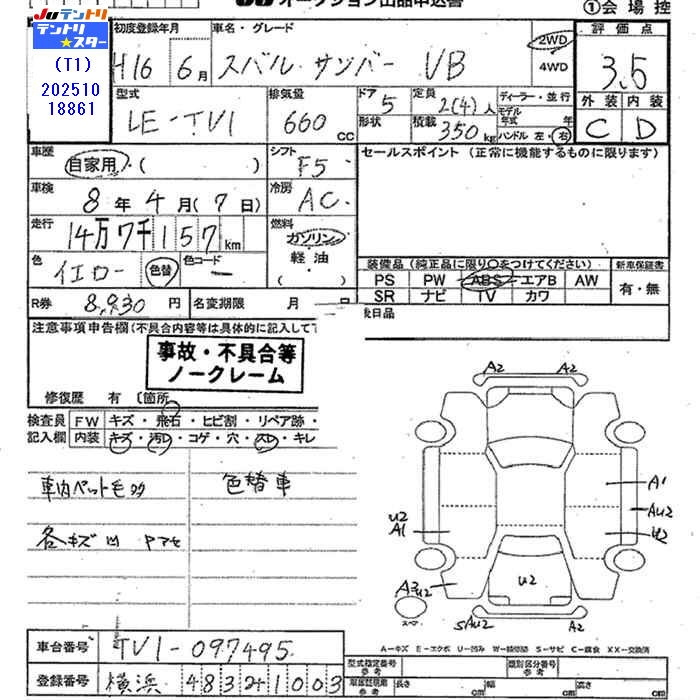 JU オークション出品申込書
①会場控
JUテントリ
テントリ★スター
(T1)
202510
18861
初度登録年月
H16 6月
車名・グレード
スバル サンバー VB
2WD
4WD
評価点
3.5
外装 内装
C D
型式
LE-TV1
排気量
660 cc
ドア 5
形状
定員 2(4)人
積載 350 kg
ディーラー・並行
モデル年式 年
ハンドル 左・右
車歴
自家用 ( )
シフト
F5
セールスポイント (正常に機能するものに限ります)
車検
8年4月(7日)
冷房
AC
走行
14万7千157km
燃料
ガソリン
軽油
( )
色
イエロー 色替
色コード
ー
装備品 (純正品に限り○をつけてください)
新車保証書
PS PW ABS エアB AW
SR ナビ TV カワ
有・無
R券 8,930円
名変期限 月 日
後日品
注意事項申告欄(不具合内容等は具体的に記入して下
事故・不具合等
ノークレーム
修復歴 有 〔箇所
検査員
記入欄
FW キズ・飛石・ヒビ割・リペア跡・
内装 キズ・汚レ・コゲ・穴・スレ・キレ
車内ペット毛多
色替車
各キズ凹
A2 A2
A1
AU2
U2
U2
A1
A3U2
U2
SAU2 A2
スペア
A-キズ E-エクボ U-凹み W-補修跡 S-サビ C-腐食 XX-交換済
車台番号
TV1-097495
登録番号
横浜 483 1003
型式指定番号
参考
類別区分番号
参考
長さ cm 幅 cm 高さ cm